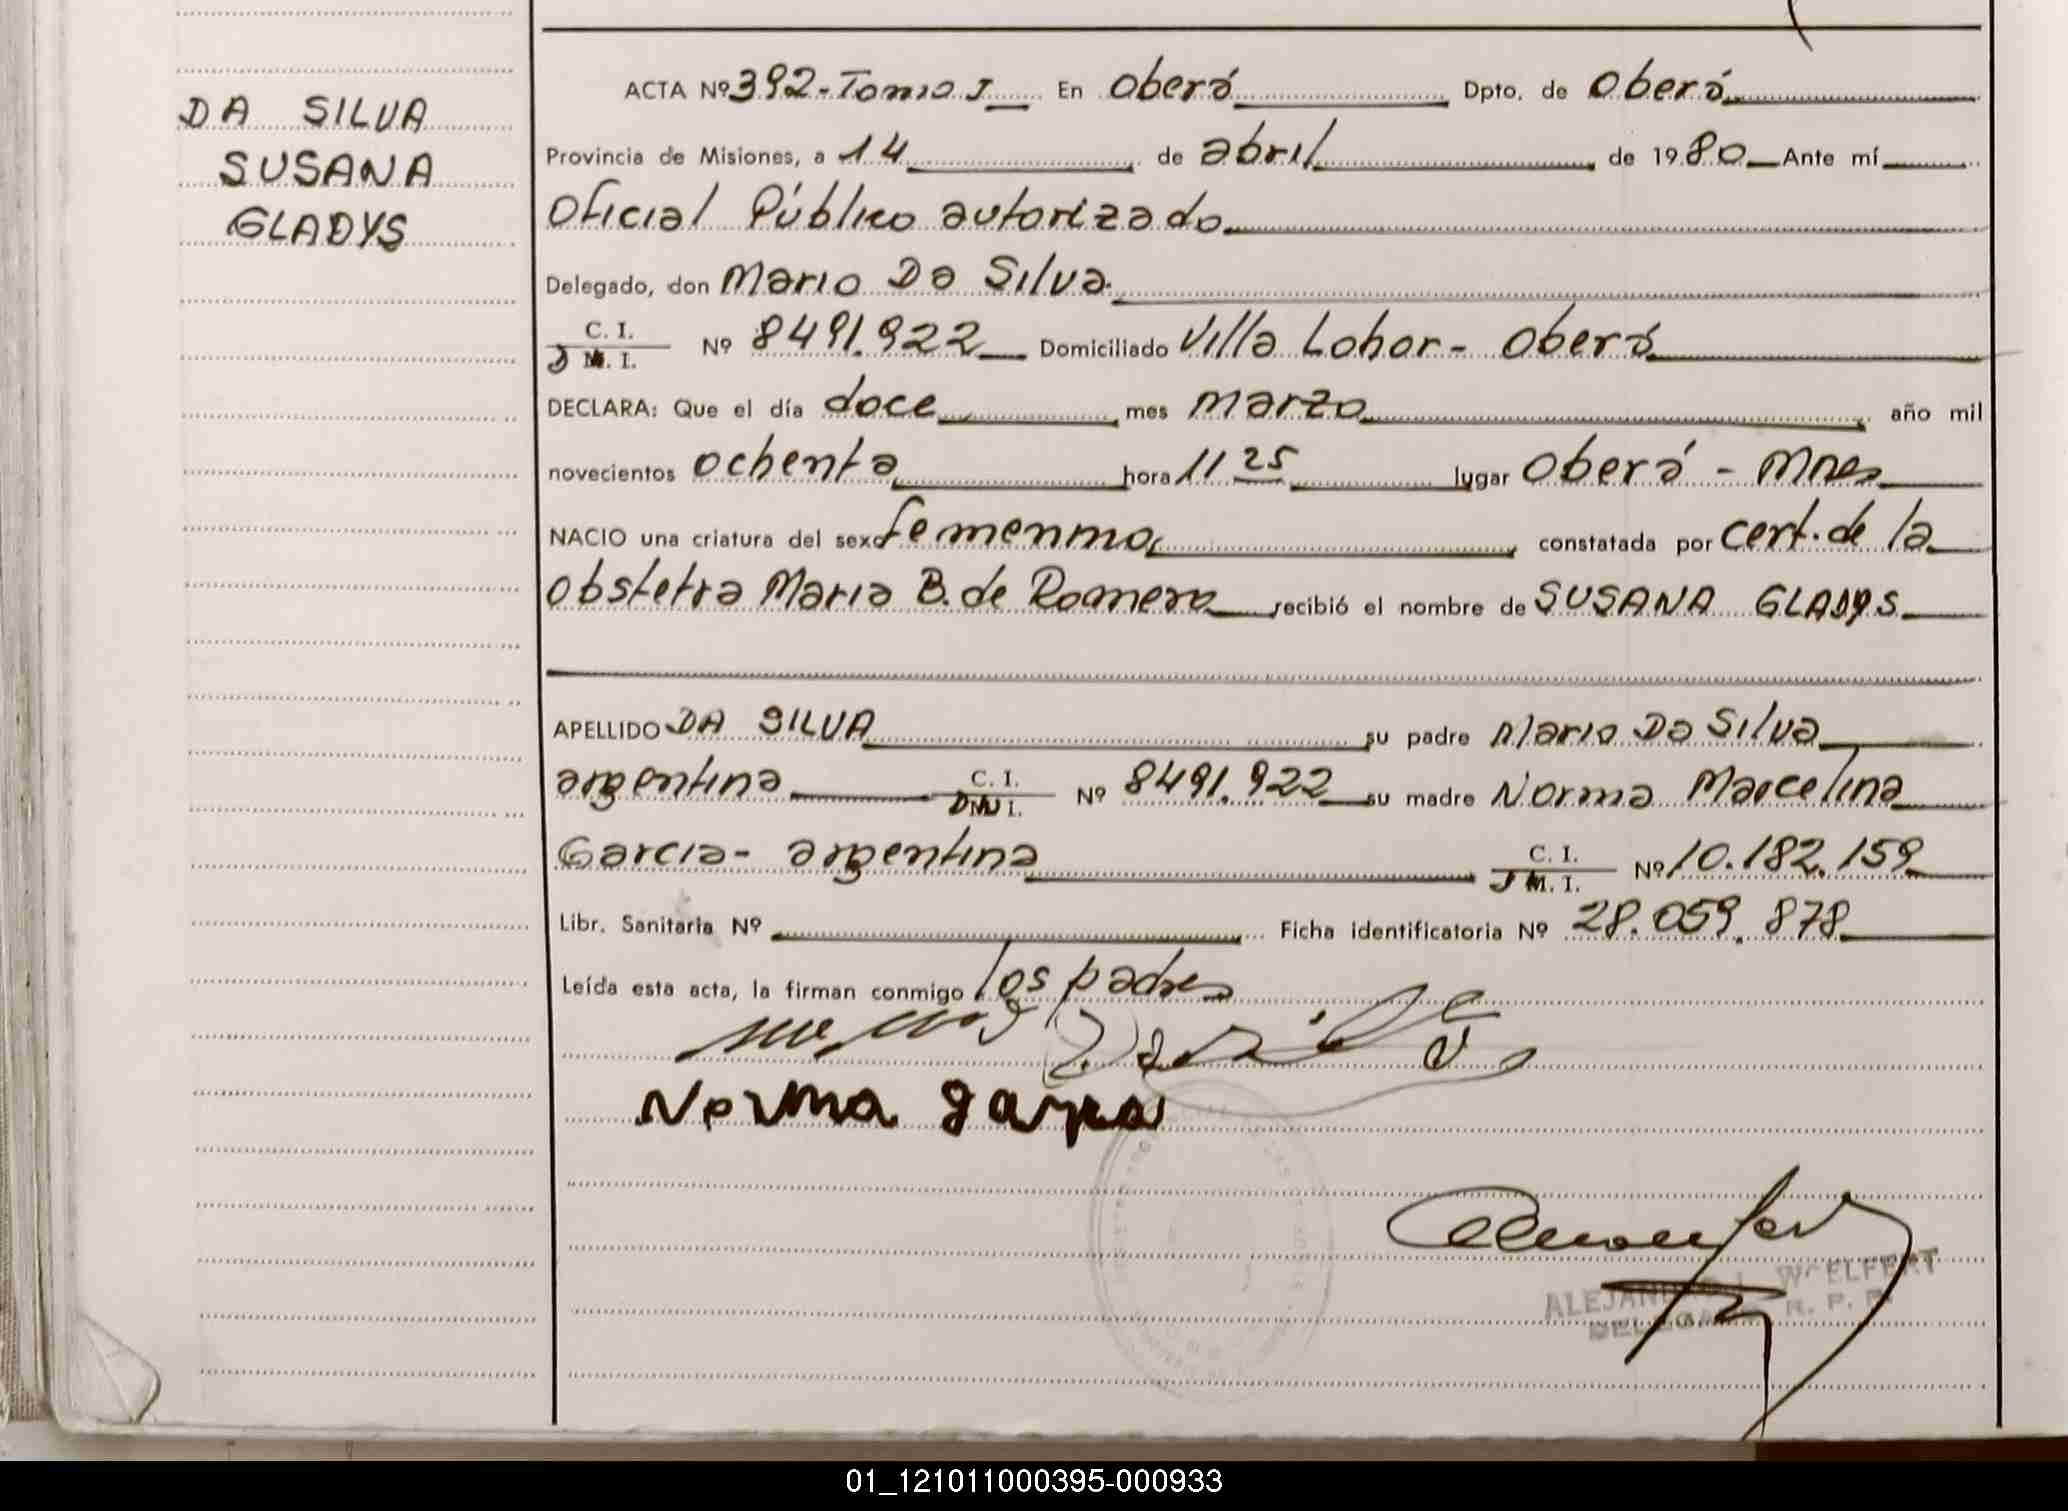 DA SILVA
SUSANA
GLADYS
ACTA Nº 392-Tomo I En Oberá Dpto. de Oberá
Provincia de Misiones, a 14 de abril de 1980 Ante mí
Oficial Público autorizado
Delegado, don Mario Da Silva.
C. I.
D M. I. Nº 8491.922 Domiciliado Villa Lohor - Oberá
DECLARA: Que el día doce mes marzo año mil
novecientos ochenta hora 11 25 lugar Oberá - Mnes
NACIO una criatura del sexo femenino, constatada por cert. de la
Obstetra Maria B. de Romero recibió el nombre de SUSANA GLADYS
APELLIDO DA SILVA su padre Mario Da Silva
argentina C. I.
DNI. Nº 8491.922 su madre Norma Marcelina
Garcia - argentina C. I.
M. I. Nº 10.182.159
Libr. Sanitaria Nº Ficha identificatoria Nº 28.059.878
Leída esta acta, la firman conmigo los padres
Mario Da Silva
Norma
WOELFERT
R. P. P.
01_121011000395-000933